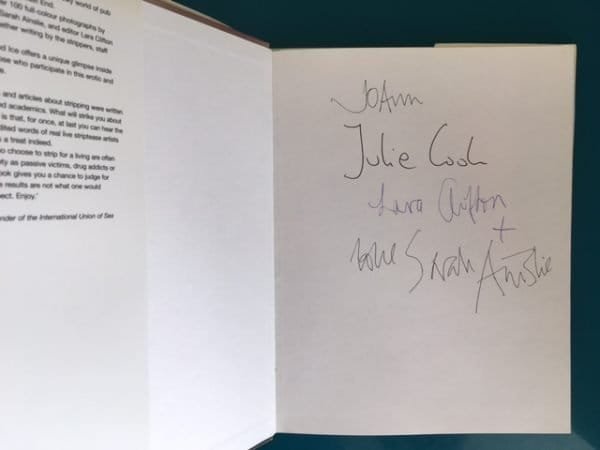 y world of pub
End.
r 100 full-colour photographs by
Sarah Ainslie, and editor Lara Clifton
ether writing by the strippers, staff
d Ice offers a unique glimpse inside
se who participate in this erotic and
e.
and articles about stripping were written
d academics. What will strike you about
is that, for once, at last you can hear the
dited words of real live striptease artists
a treat indeed.
o choose to strip for a living are often
ty as passive victims, drug addicts or
ook gives you a chance to judge for
e results are not what one would
pect. Enjoy.'
nder of the International Union of Sex
JoAnn
Julie Cook
Lara Clifton
+
love Sarah Ainslie